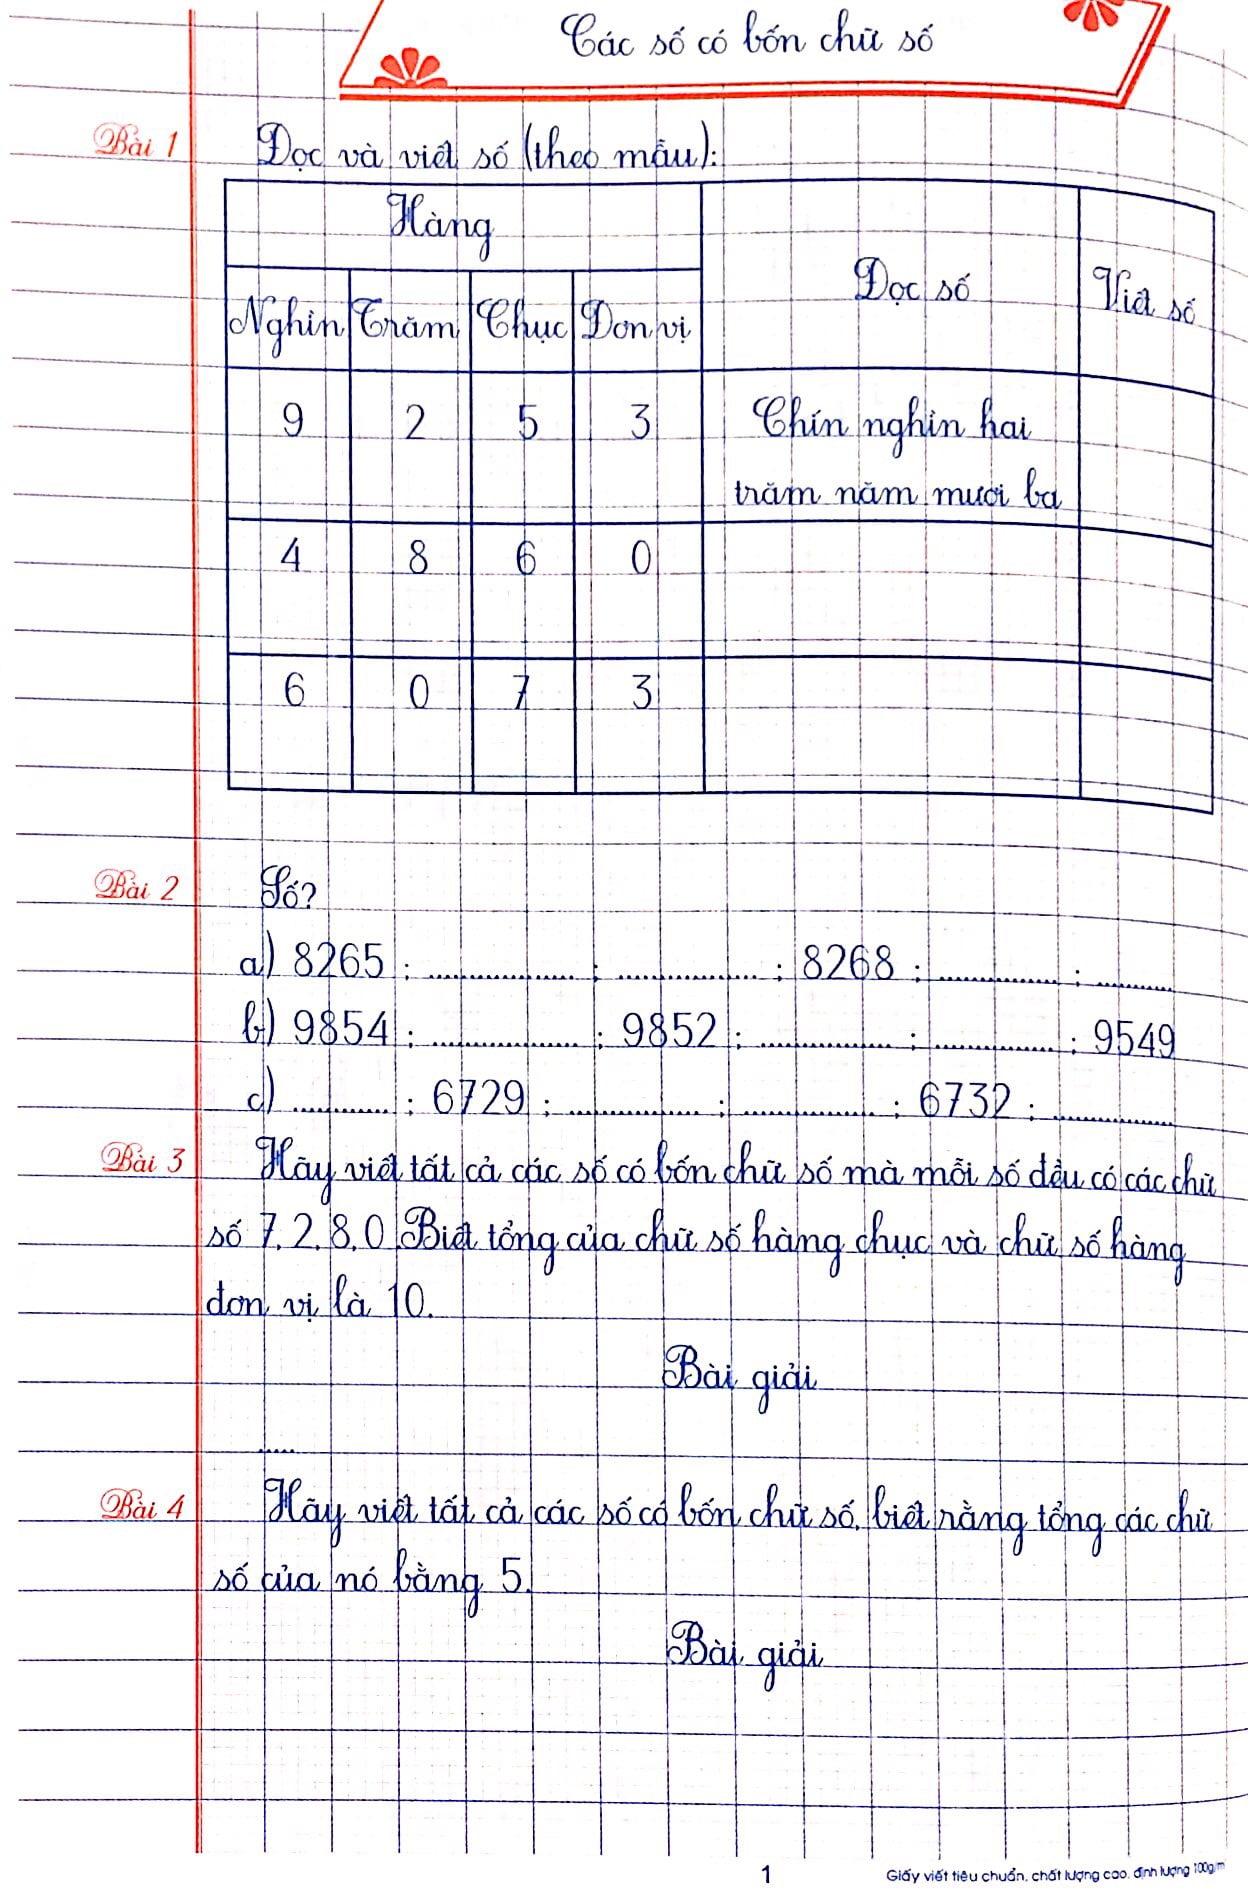 Các số có bốn chữ số
Bài 1
Đọc và viết số (theo mẫu):
Hàng
Đọc số
Viết số
Nghìn Trăm Chục Đơn vị
9 2 5 3 Chín nghìn hai
trăm năm mươi ba
4 8 6 0
6 0 7 3
Bài 2
Số?
a) 8265 ; .................. ; .................. ; 8268 ; ............... ; ..........
b) 9854 ; .................. ; 9852 ; ................ ; ............... ; 9549
c) ............ ; 6729 ; ................ ; ................ ; 6732 ; ...............
Bài 3
Hãy viết tất cả các số có bốn chữ số mà mỗi số đều có các chữ
số 7, 2, 8, 0. Biết tổng của chữ số hàng chục và chữ số hàng
đơn vị là 10.
Bài giải
.....
Bài 4
Hãy viết tất cả các số có bốn chữ số, biết rằng tổng các chữ
số của nó bằng 5.
Bài giải
1
Giấy viết tiêu chuẩn, chất lượng cao, định lượng 100g/m